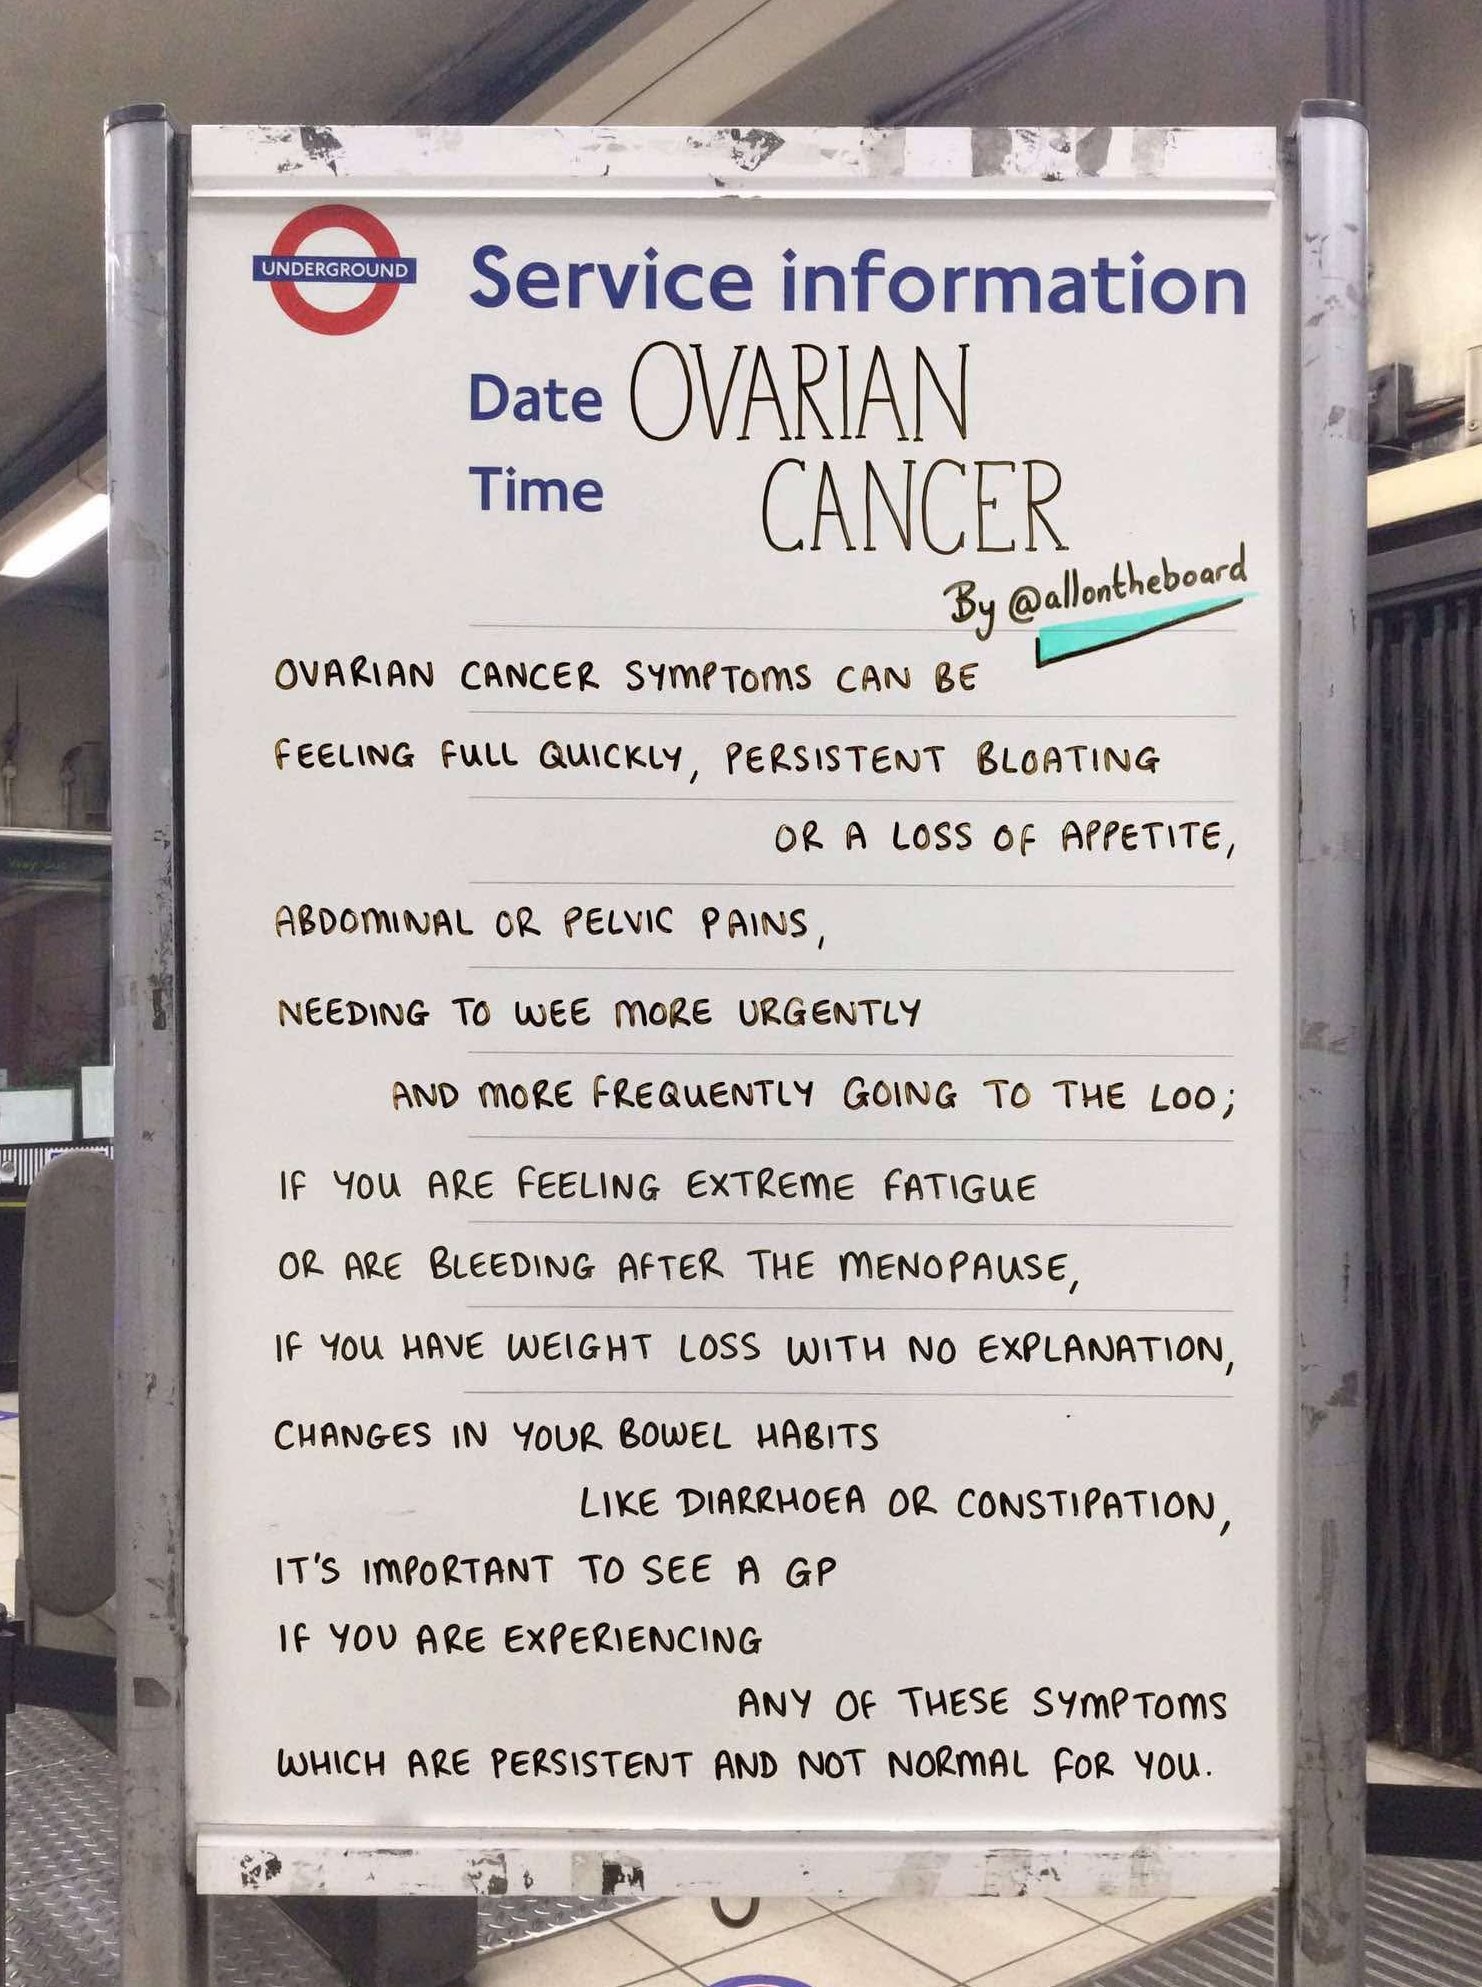 UNDERGROUND
Service information
Date OVARIAN
Time CANCER
By @allontheboard
OVARIAN CANCER SYMPTOMS CAN BE
FEELING FULL QUICKLY, PERSISTENT BLOATING
OR A LOSS OF APPETITE,
ABDOMINAL OR PELVIC PAINS,
NEEDING TO WEE MORE URGENTLY
AND MORE FREQUENTLY GOING TO THE LOO;
IF YOU ARE FEELING EXTREME FATIGUE
OR ARE BLEEDING AFTER THE MENOPAUSE,
IF YOU HAVE WEIGHT LOSS WITH NO EXPLANATION,
CHANGES IN YOUR BOWEL HABITS
LIKE DIARRHOEA OR CONSTIPATION,
IT'S IMPORTANT TO SEE A GP
IF YOU ARE EXPERIENCING
ANY OF THESE SYMPTOMS
WHICH ARE PERSISTENT AND NOT NORMAL FOR YOU.